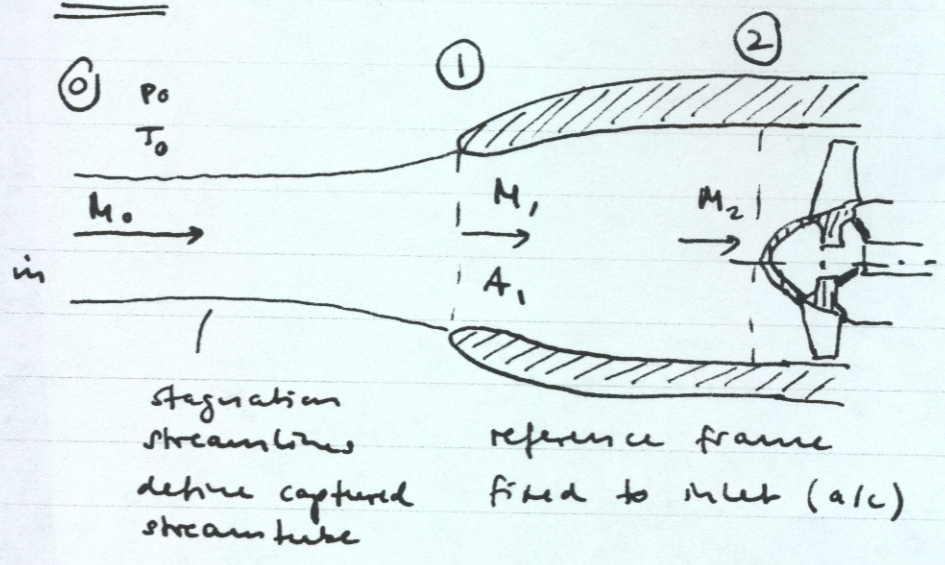 0
1
2
p₀
T₀
M₀
M₁
M₂
in
A₁
stagnation
streamlines
define captured
streamtube
reference frame
fixed to inlet (a/c)